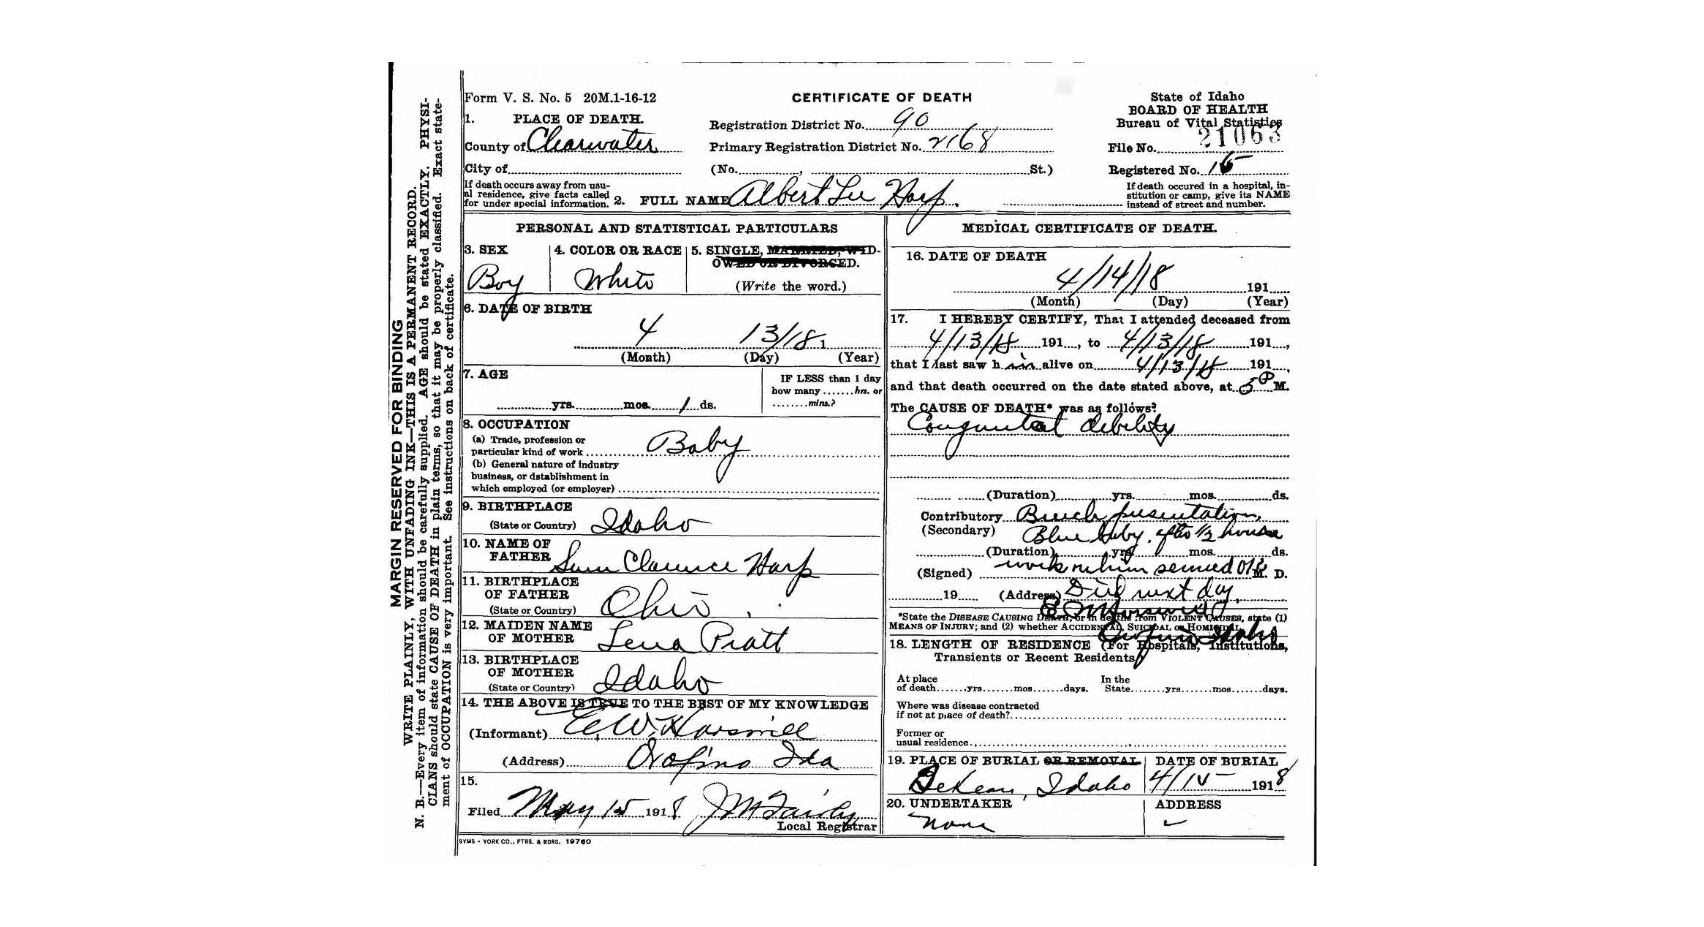 MARGIN RESERVED FOR BINDING
WRITE PLAINLY, WITH UNFADING INK—THIS IS A PERMANENT RECORD.
N. B.—Every item of information should be carefully supplied. AGE should be stated EXACTLY. PHYSI-
CIANS should state CAUSE OF DEATH in plain terms, so that it may be properly classified. Exact state-
ment of OCCUPATION is very important. See instructions on back of certificate.
Form V. S. No. 5 20M.1-16-12
CERTIFICATE OF DEATH
State of Idaho
BOARD OF HEALTH
Bureau of Vital Statistics
1. PLACE OF DEATH.
County of Clearwater
City of
Registration District No. 90
Primary Registration District No. 2168
(No. , St.)
File No. 21063
Registered No. 15
If death occurs away from usu-
al residence, give facts called
for under special information.
2. FULL NAME Albert Lee Harp.
If death occured in a hospital, in-
stitution or camp, give its NAME
instead of street and number.
PERSONAL AND STATISTICAL PARTICULARS
3. SEX
Boy
4. COLOR OR RACE
White
5. SINGLE, MARRIED, WID-
OWED OR DIVORCED.
(Write the word.)
6. DATE OF BIRTH
4 13/18 1
(Month) (Day) (Year)
7. AGE
yrs. mos. 1 ds.
IF LESS than 1 day
how many ......hrs. or
........mins.?
8. OCCUPATION
(a) Trade, profession or
particular kind of work Baby
(b) General nature of industry
business, or dstablishment in
which employed (or employer)
9. BIRTHPLACE
(State or Country) Idaho
10. NAME OF
FATHER Clarence Harp
11. BIRTHPLACE
OF FATHER
(State or Country) Ohio
12. MAIDEN NAME
OF MOTHER Lena Pratt
13. BIRTHPLACE
OF MOTHER
(State or Country) Idaho
14. THE ABOVE IS TRUE TO THE BEST OF MY KNOWLEDGE
(Informant) E. W. Horswill
(Address) Orofino Ida
15.
Filed May 15 1918 J M Fairly
Local Registrar
MEDICAL CERTIFICATE OF DEATH.
16. DATE OF DEATH
4/14/18 191
(Month) (Day) (Year)
17. I HEREBY CERTIFY, That I attended deceased from
4/13/18 191 , to 4/13/18 191 ,
that I last saw h im alive on 4/13/18 191 ,
and that death occurred on the date stated above, at 5 P M.
The CAUSE OF DEATH* was as follows:
Congenital debility
(Duration) yrs. mos. ds.
Contributory Breech presentation,
(Secondary) Blue baby. after 1/2 hours
(Duration) yrs. mos. ds.
work on him seemed O.K.
(Signed) M. D.
19 (Address) Died next day.
E W Horswill
*State the DISEASE CAUSING DEATH, or in deaths from VIOLENT CAUSES, state (1)
MEANS OF INJURY; and (2) whether ACCIDENTAL, SUICIDAL or HOMICIDAL
Orofino Idaho
18. LENGTH OF RESIDENCE (For Hospitals, Institutions,
Transients or Recent Residents)
At place
of death......yrs......mos......days.
In the
State......yrs......mos......days.
Where was disease contracted
if not at place of death?
Former or
usual residence
19. PLACE OF BURIAL OR REMOVAL
Idaho
DATE OF BURIAL
4/15 1918
20. UNDERTAKER
none
ADDRESS
SYMS - YORK CO., PTRS. & BDRS. 19760